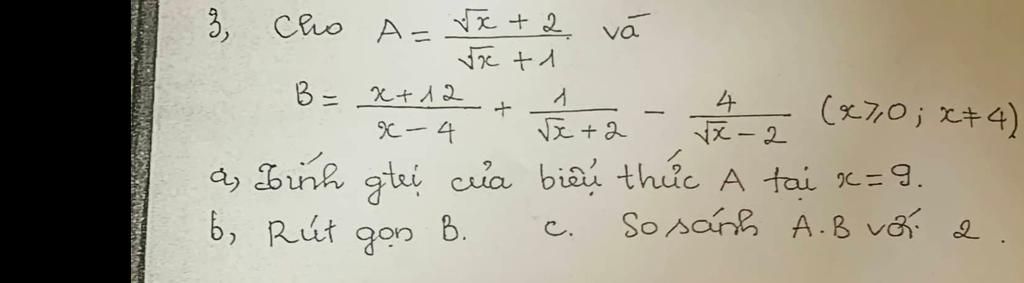 3, Cho A = \frac{\sqrt{x} + 2}{\sqrt{x} + 1} và
B = \frac{x + 12}{x - 4} + \frac{1}{\sqrt{x} + 2} - \frac{4}{\sqrt{x} - 2} (x ≥ 0 ; x ≠ 4)
a, Tính gtrị của biểu thức A tại x = 9.
b, Rút gọn B. c. So sánh A.B với 2.